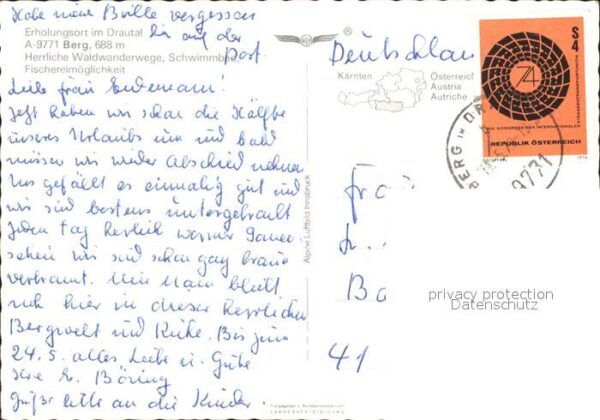 Habe meine Brille vergessen
bin auf der
Post.
Erholungsort im Drautal
A-9771 Berg, 688 m
Herrliche Waldwanderwege, Schwimmbad,
Fischereimöglichkeit
Liebe Frau
Jetzt haben wir schon die Hälfte
unseres Urlaubs um und bald
müssen wir wieder Abschied nehmen
Uns gefällt es einmalig gut und
wir sind bestens untergebracht
Jeden Tag herrlich warmer Sonnen
schein wir sind schon ganz braun
verbrannt. Mein Mann blüht
sich hier in dieser herrlichen
Bergwelt und Ruhe. Bis zum
24.5. alles Liebe u. Gute
Ihre E. Böring
Grüße bitte an die Kinder.
Alpine Luftbild Innsbruck
Deutschlan
Kärnten
Österreich
Austria
Autriche
S 4
74
REPUBLIK ÖSTERREICH
BERG IM DR
9771
Fra
Ba
41
privacy protection
Datenschutz